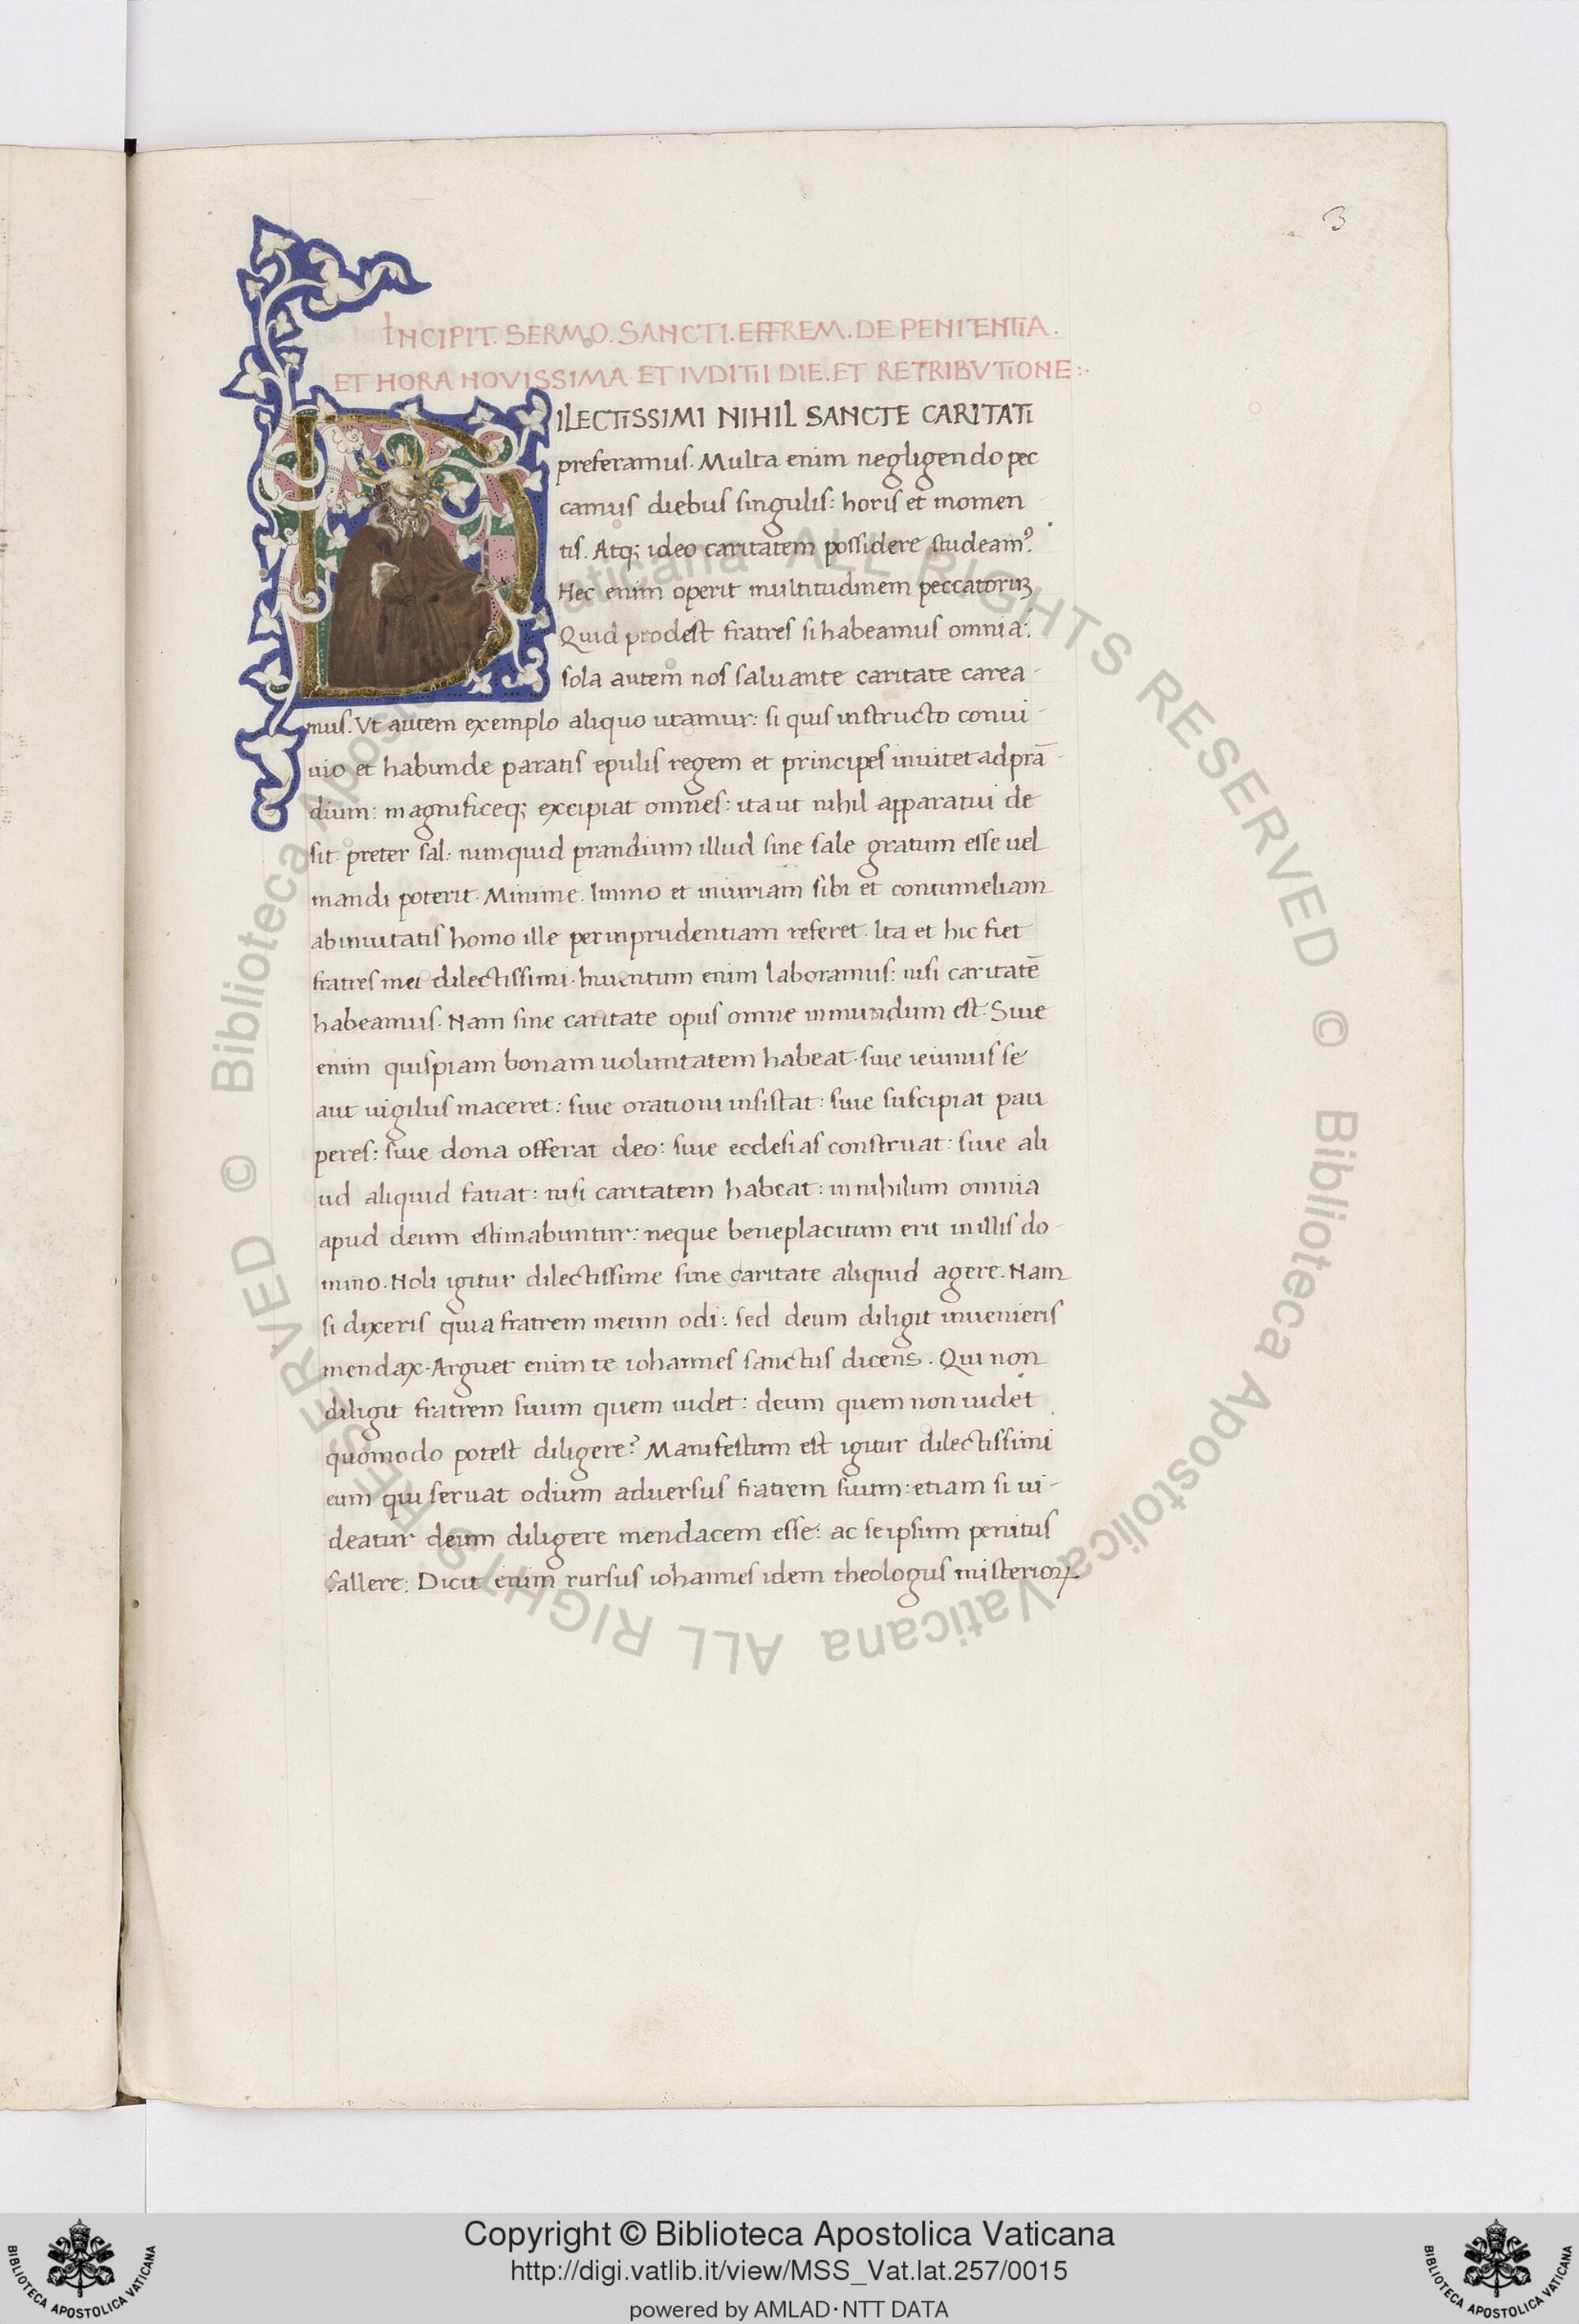 3
INCIPIT. SERMO. SANCTI. EFFREM. DE PENITENTIA.
ET HORA NOVISSIMA. ET IVDITII DIE. ET RETRIBVTIONE:.
DILECTISSIMI NIHIL SANCTE CARITATI
preferamus. Multa enim negligendo pec
camus diebus singulis: horis et momen
tis. Atq; ideo caritatem possidere studeamꝰ.
Hec enim operit multitudinem peccatorūꝫ
Quid prodest fratres si habeamus omnia:
sola autem nos saluante caritate carea-
mus. Vt autem exemplo aliquo utamur: si quis instructo conui-
uio et habunde paratis epulis regem et principes inuitet ad prā-
dium: magnificeq; excipiat omnes: ita ut nihil apparatui de
sit. preter sal: numquid prandium illud sine sale gratum esse uel
mandi poterit. Minime. Immo et iniuriam sibi et contumeliam
ab inuitatis homo ille per inprudentiam referet. Ita et hic fiet
fratres mei dilectissimi. In uentum enim laboramus: nisi caritatē
habeamus. Nam sine caritate opus omne inmundum est. Siue
enim quispiam bonam uoluntatem habeat. siue ieiuniis se
aut uigiliis maceret: siue orationi insistat: siue suscipiat pau
peres: siue dona offerat deo: siue ecclesias construat: siue ali
ud aliquid fatiat: nisi caritatem habeat: in nihilum omnia
apud deum estimabuntur: neque beneplacitum erit in illis do-
mino. Noli igitur dilectissime sine caritate aliquid agere. Nam
si dixeris quia fratrem meum odi: sed deum diligit inuenieris
mendax. Arguet enim te iohannes sanctus dicens. Qui non
diligit fratrem suum quem uidet: deum quem non uidet
quomodo potest diligere? Manifestum est igitur dilectissimi
eum qui seruat odium aduersus fratrem suum: etiam si ui-
deatur deum diligere mendacem esse: ac se ipsum penitus
fallere. Dicit enim rursus iohannes idem theologus misterioꝝ
© Biblioteca Apostolica Vaticana ALL RIGHTS RESERVED © Biblioteca Apostolica Vaticana ALL RIGHTS RESERVED
Copyright © Biblioteca Apostolica Vaticana
http://digi.vatlib.it/view/MSS_Vat.lat.257/0015
powered by AMLAD·NTT DATA
BIBLIOTECA APOSTOLICA VATICANA
BIBLIOTECA APOSTOLICA VATICANA